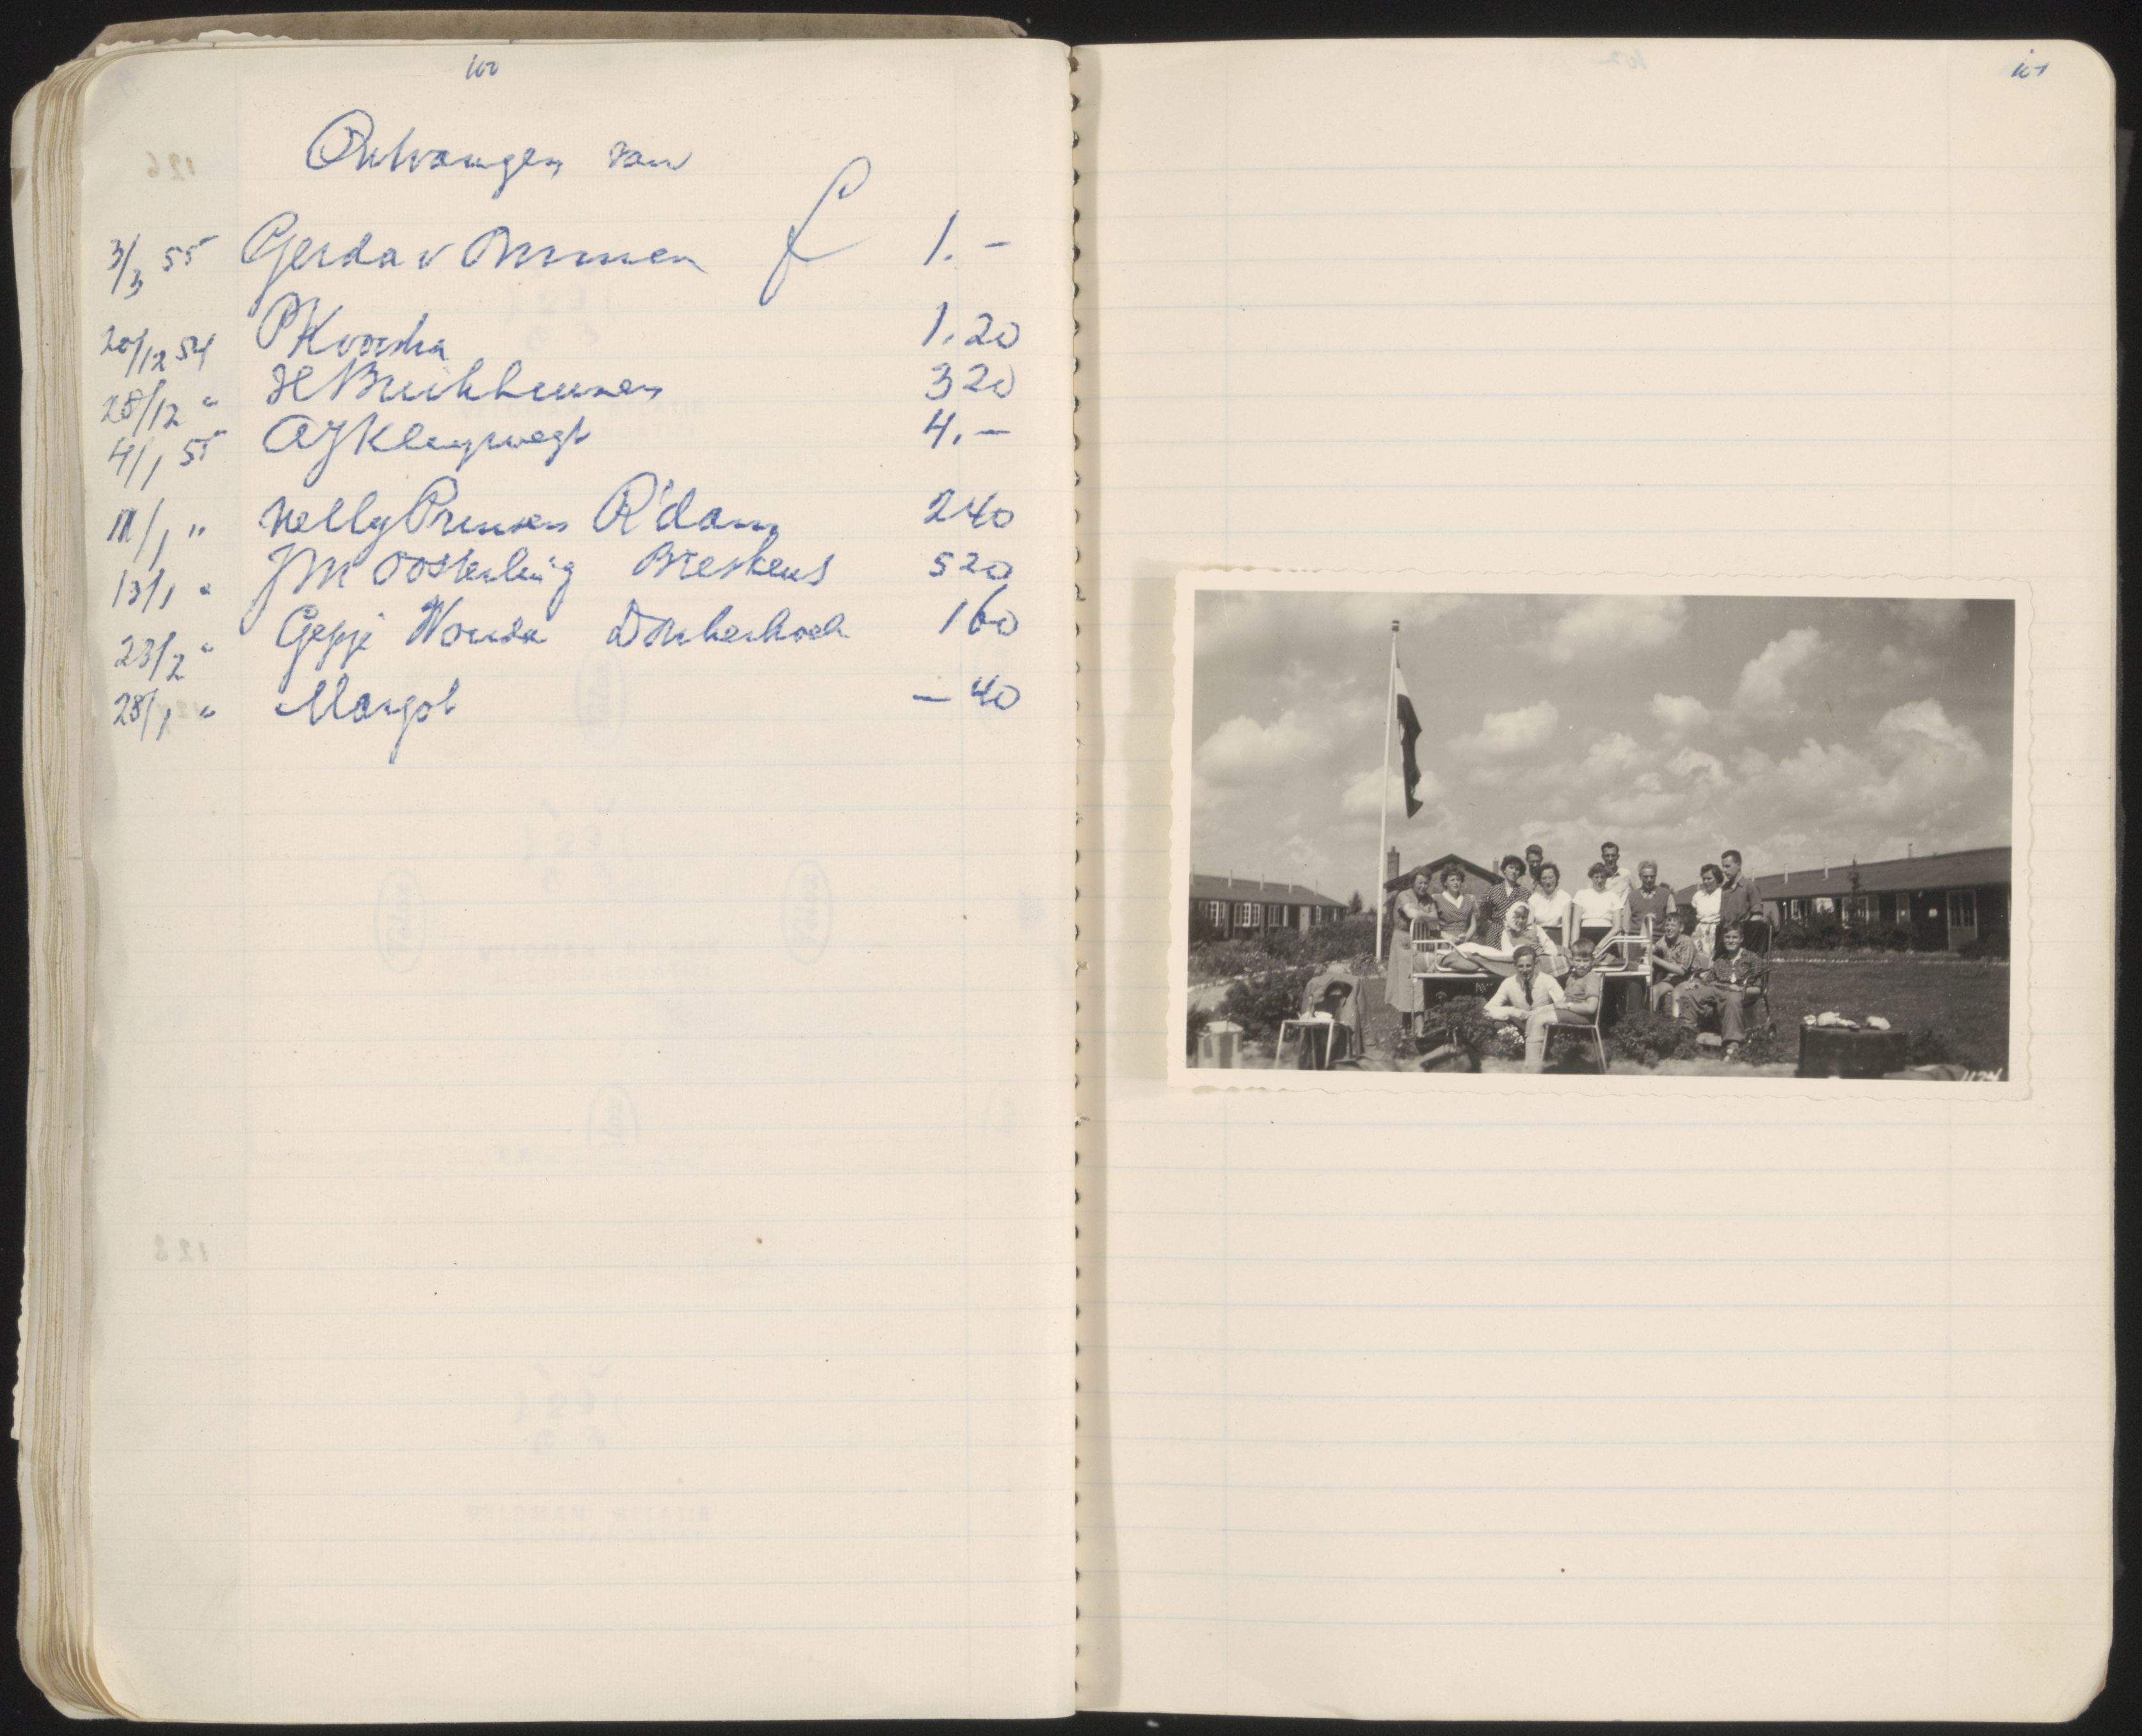 100
Ontvangen van
3/3 55 Gerda v Ommen f 1.-
20/12 54 P 1.20
28/12 " H 320
4/1 55 A J Kleijwegt 4.-
11/1 " Nelly Prinsen R'dam 240
13/1 " J M Oosterling Breskens 520
23/2 " Geppje Wouda Donkerbroek 160
28/1 " Margot - 40
101